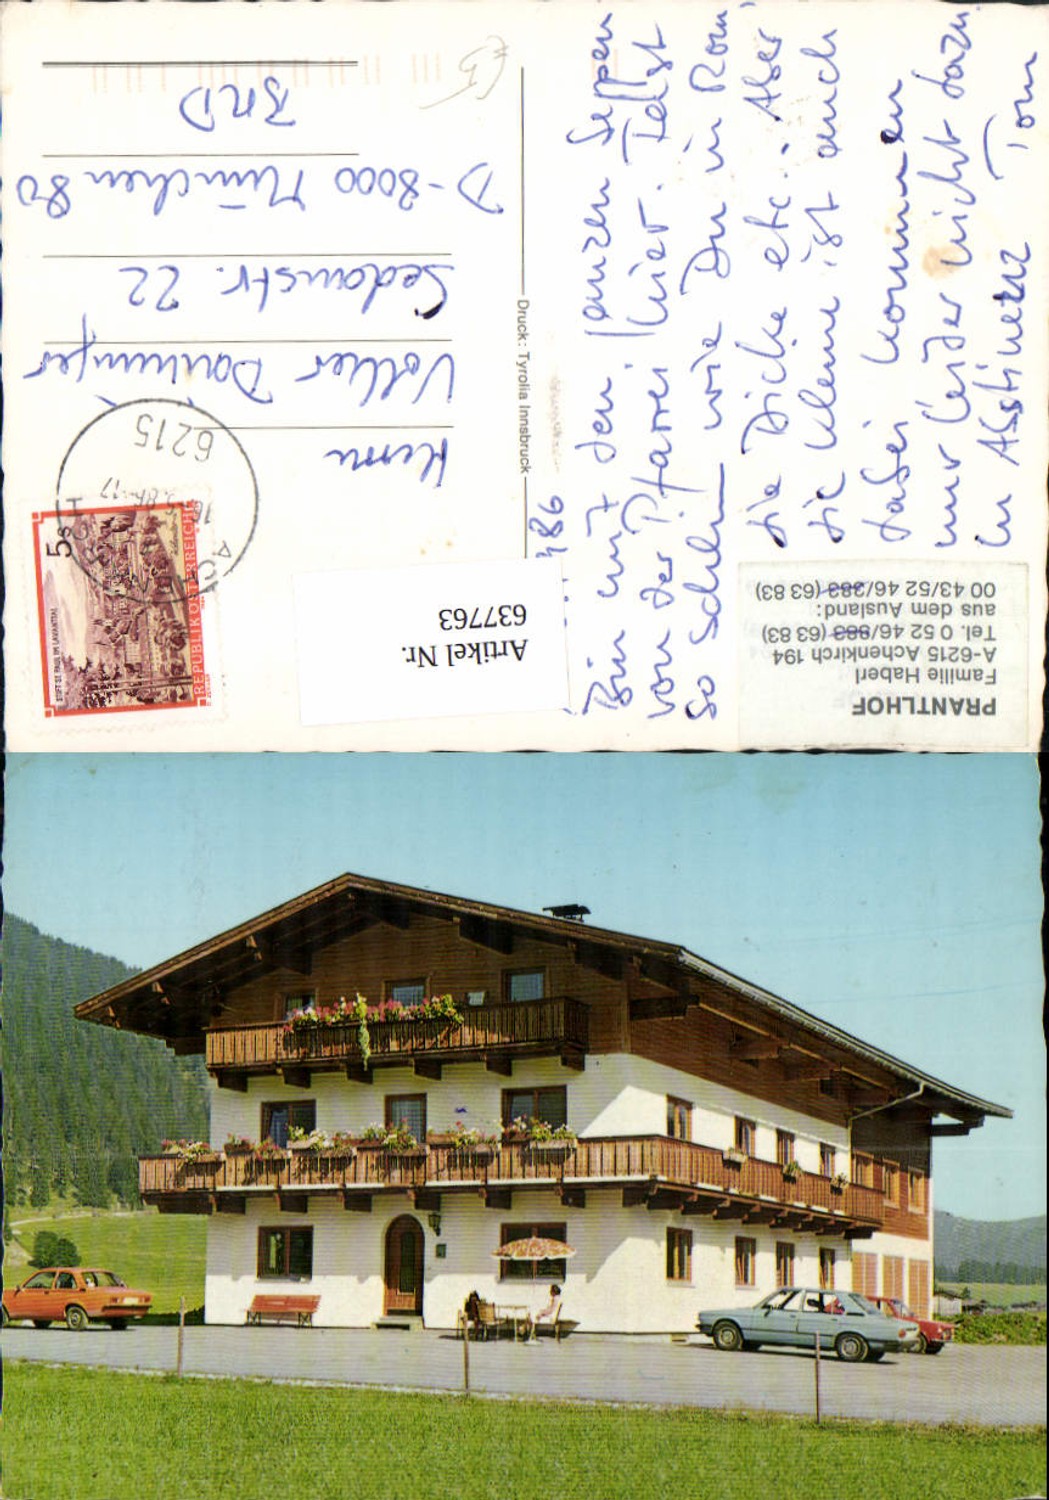 PRANTLHOF
Familie Haberl
A-6215 Achenkirch 194
Tel. 0 52 46/383 (63 83)
aus dem Ausland:
00 43/52 46/383 (63 83)
Artikel Nr.
637763
Druck: Tyrolia Innsbruck
Bin mit dem ganzen Seppen
von der Pfarrei hier. Fehlst
so sehr wie Du in Rom,
die Dicke etc.. Aber
die Kleine ist auch
dabei
nur leider nicht dazu.
In Abstinenz Tom
Herrn
Volker
Sedanstr. 22
D-8000 München 80
BRD
6215
5s
STIFT ST. PAUL IM LAVANTTAL
REPUBLIK ÖSTERREICH